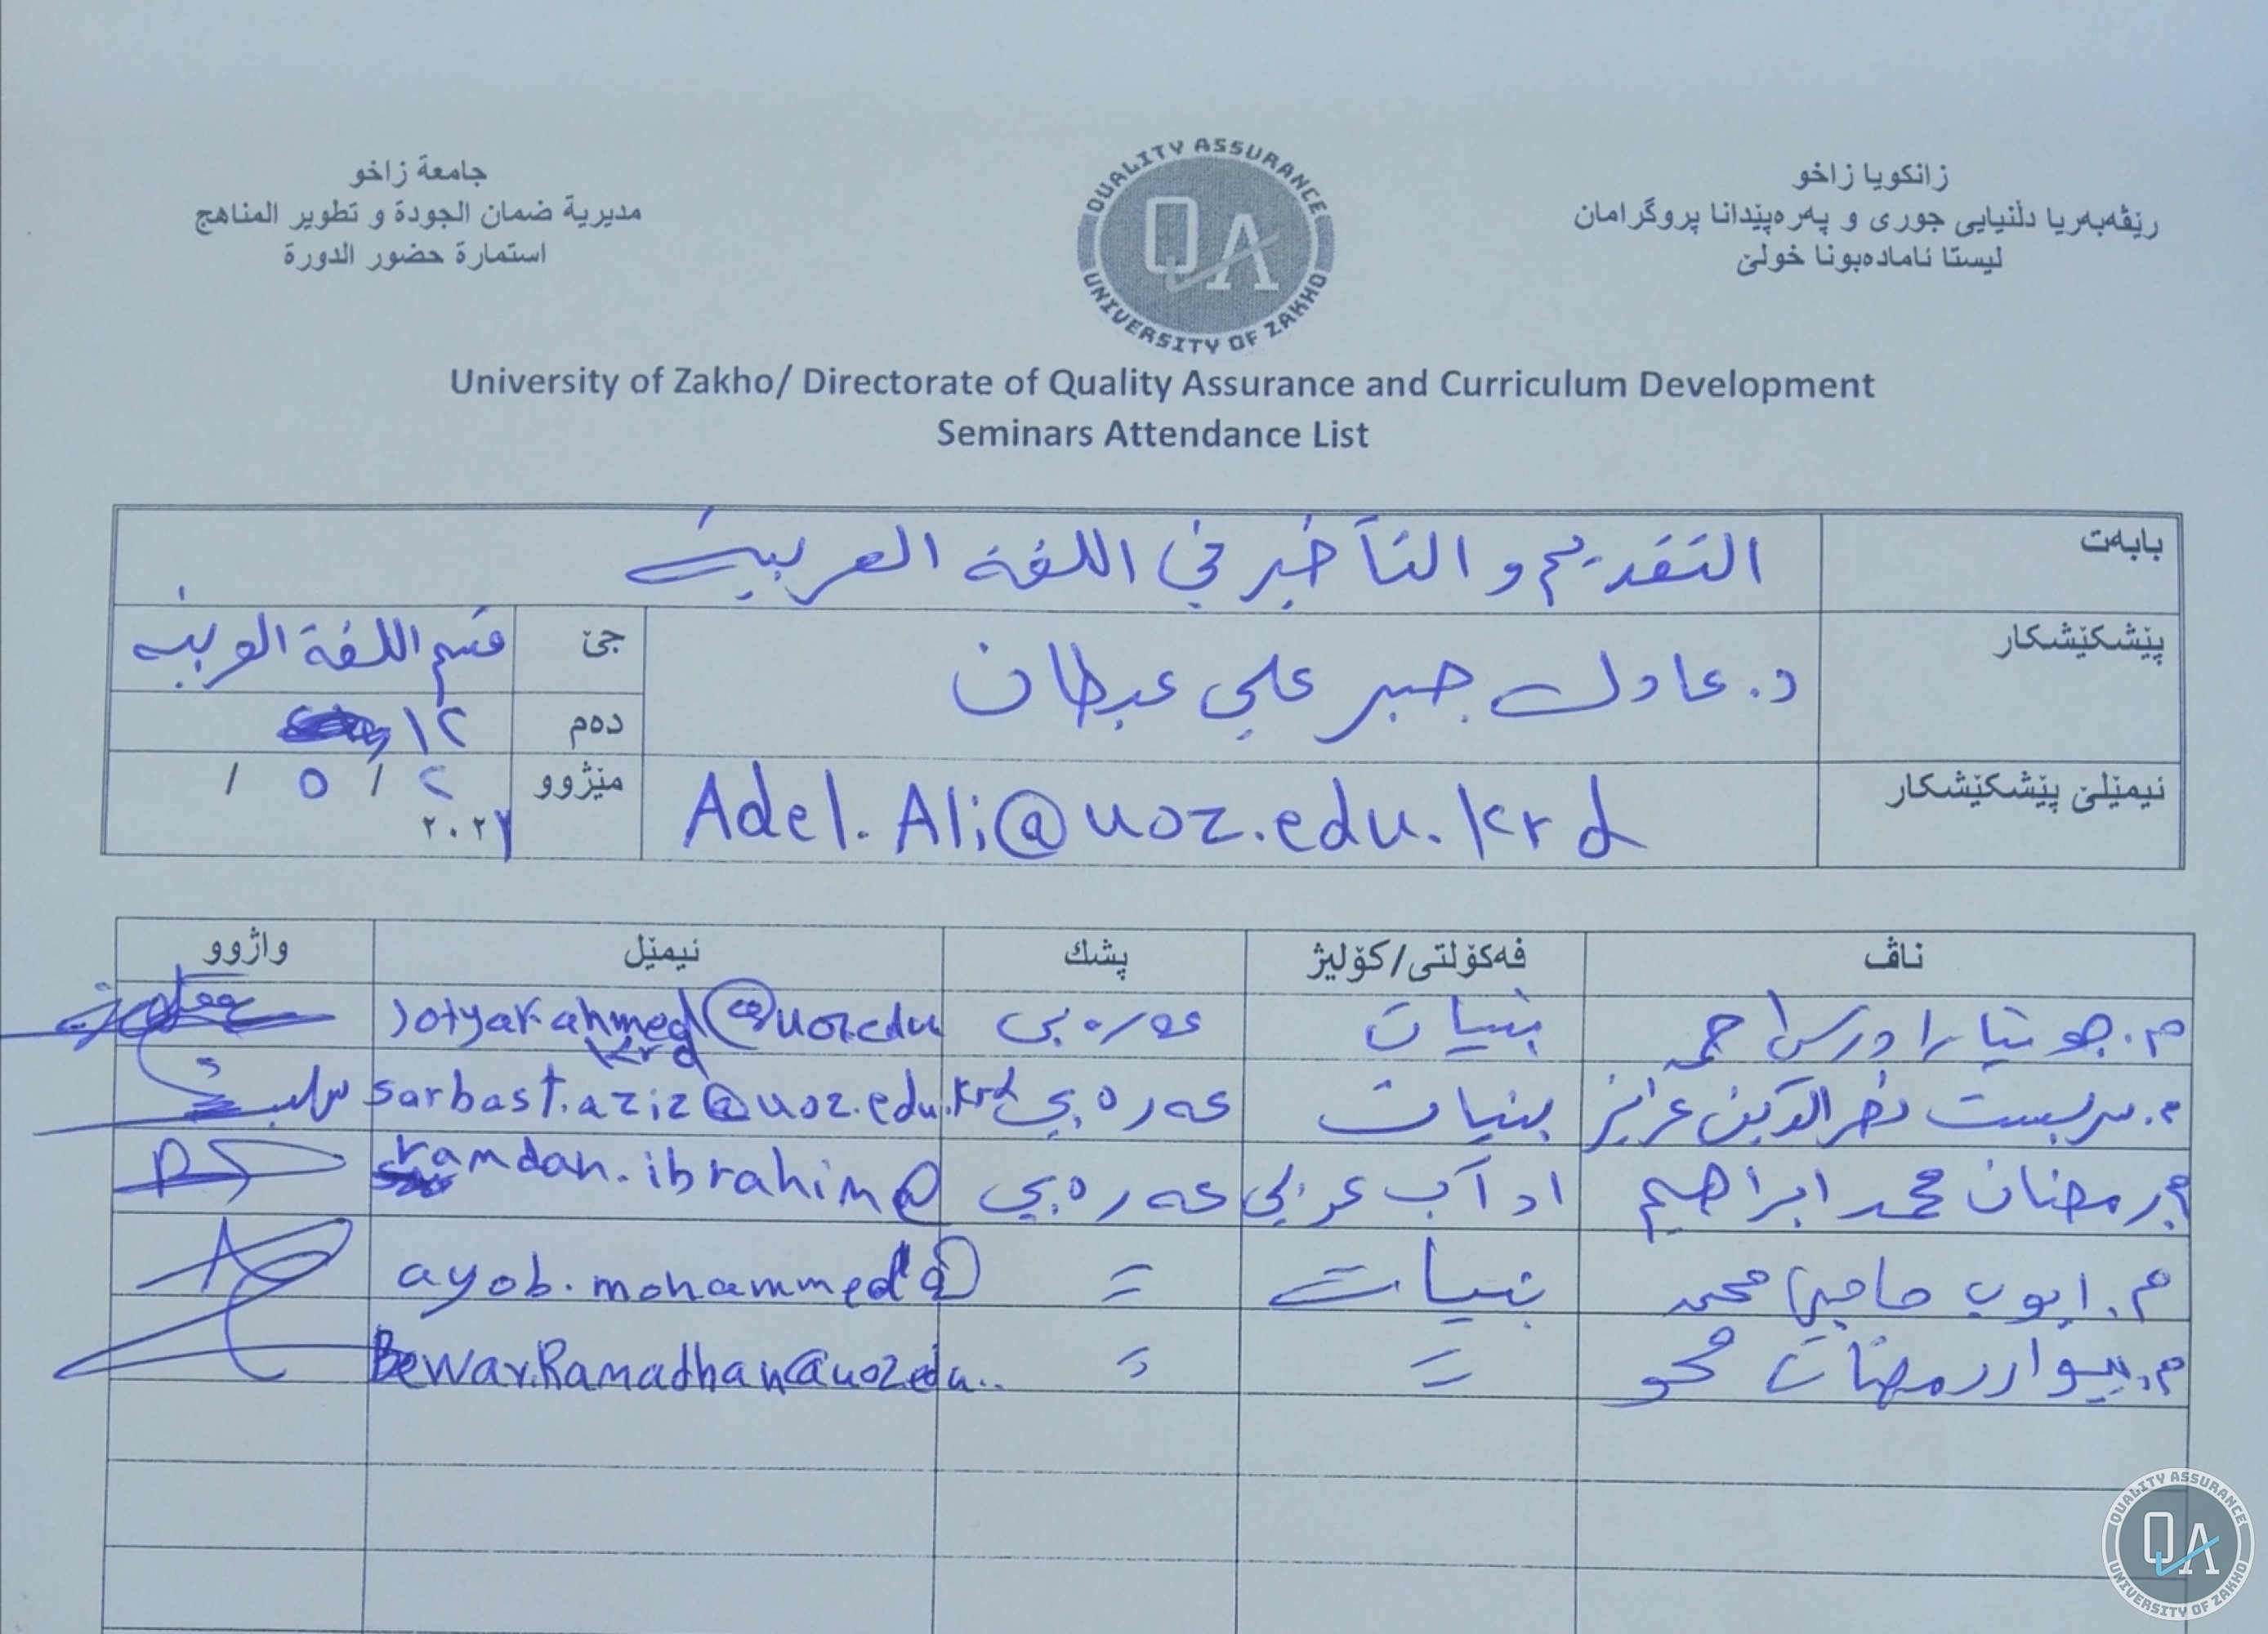 زانکویا زاخو
رێڤەبەریا دڵنیایی جوری و پەرەپێدانا پروگرامان
لیستا ئامادەبونا خولێ
جامعة زاخو
مديرية ضمان الجودة و تطوير المناهج
استمارة حضور الدورة
QUALITY ASSURANCE
QA
UNIVERSITY OF ZAKHO
University of Zakho/ Directorate of Quality Assurance and Curriculum Development
Seminars Attendance List
بابەت التقديم و التأخير في اللغة العربية
پێشکێشکار د. عادل جبر علي عبطان جێ قسم اللغة العربية
دەم ١٢
ئیمێلێ پێشکێشکار Adel.Ali@uoz.edu.krd مێژوو ٢ / ٥ /
٢٠٢
ناڤ فەکۆلتی/کۆلیژ پشك ئیمێل واژوو
م. جوتيار بنيات عەرەبی Jotyar.ahmed@uoz.edu
krd
م. سربست نصرالدين عزيز بنيات عەرەبي sarbast.aziz@uoz.edu.krd
م. رمضان محمد ابراهيم اداب عربي عەرەبي ramdan.ibrahim@
م. ايوب حاجي محمد بنيات = ayob.mohammed@
م. بيوار رمضان محو = = Bewar.Ramadhan@uoz.edu..
QUALITY ASSURANCE
QA
UNIVERSITY OF ZAKHO